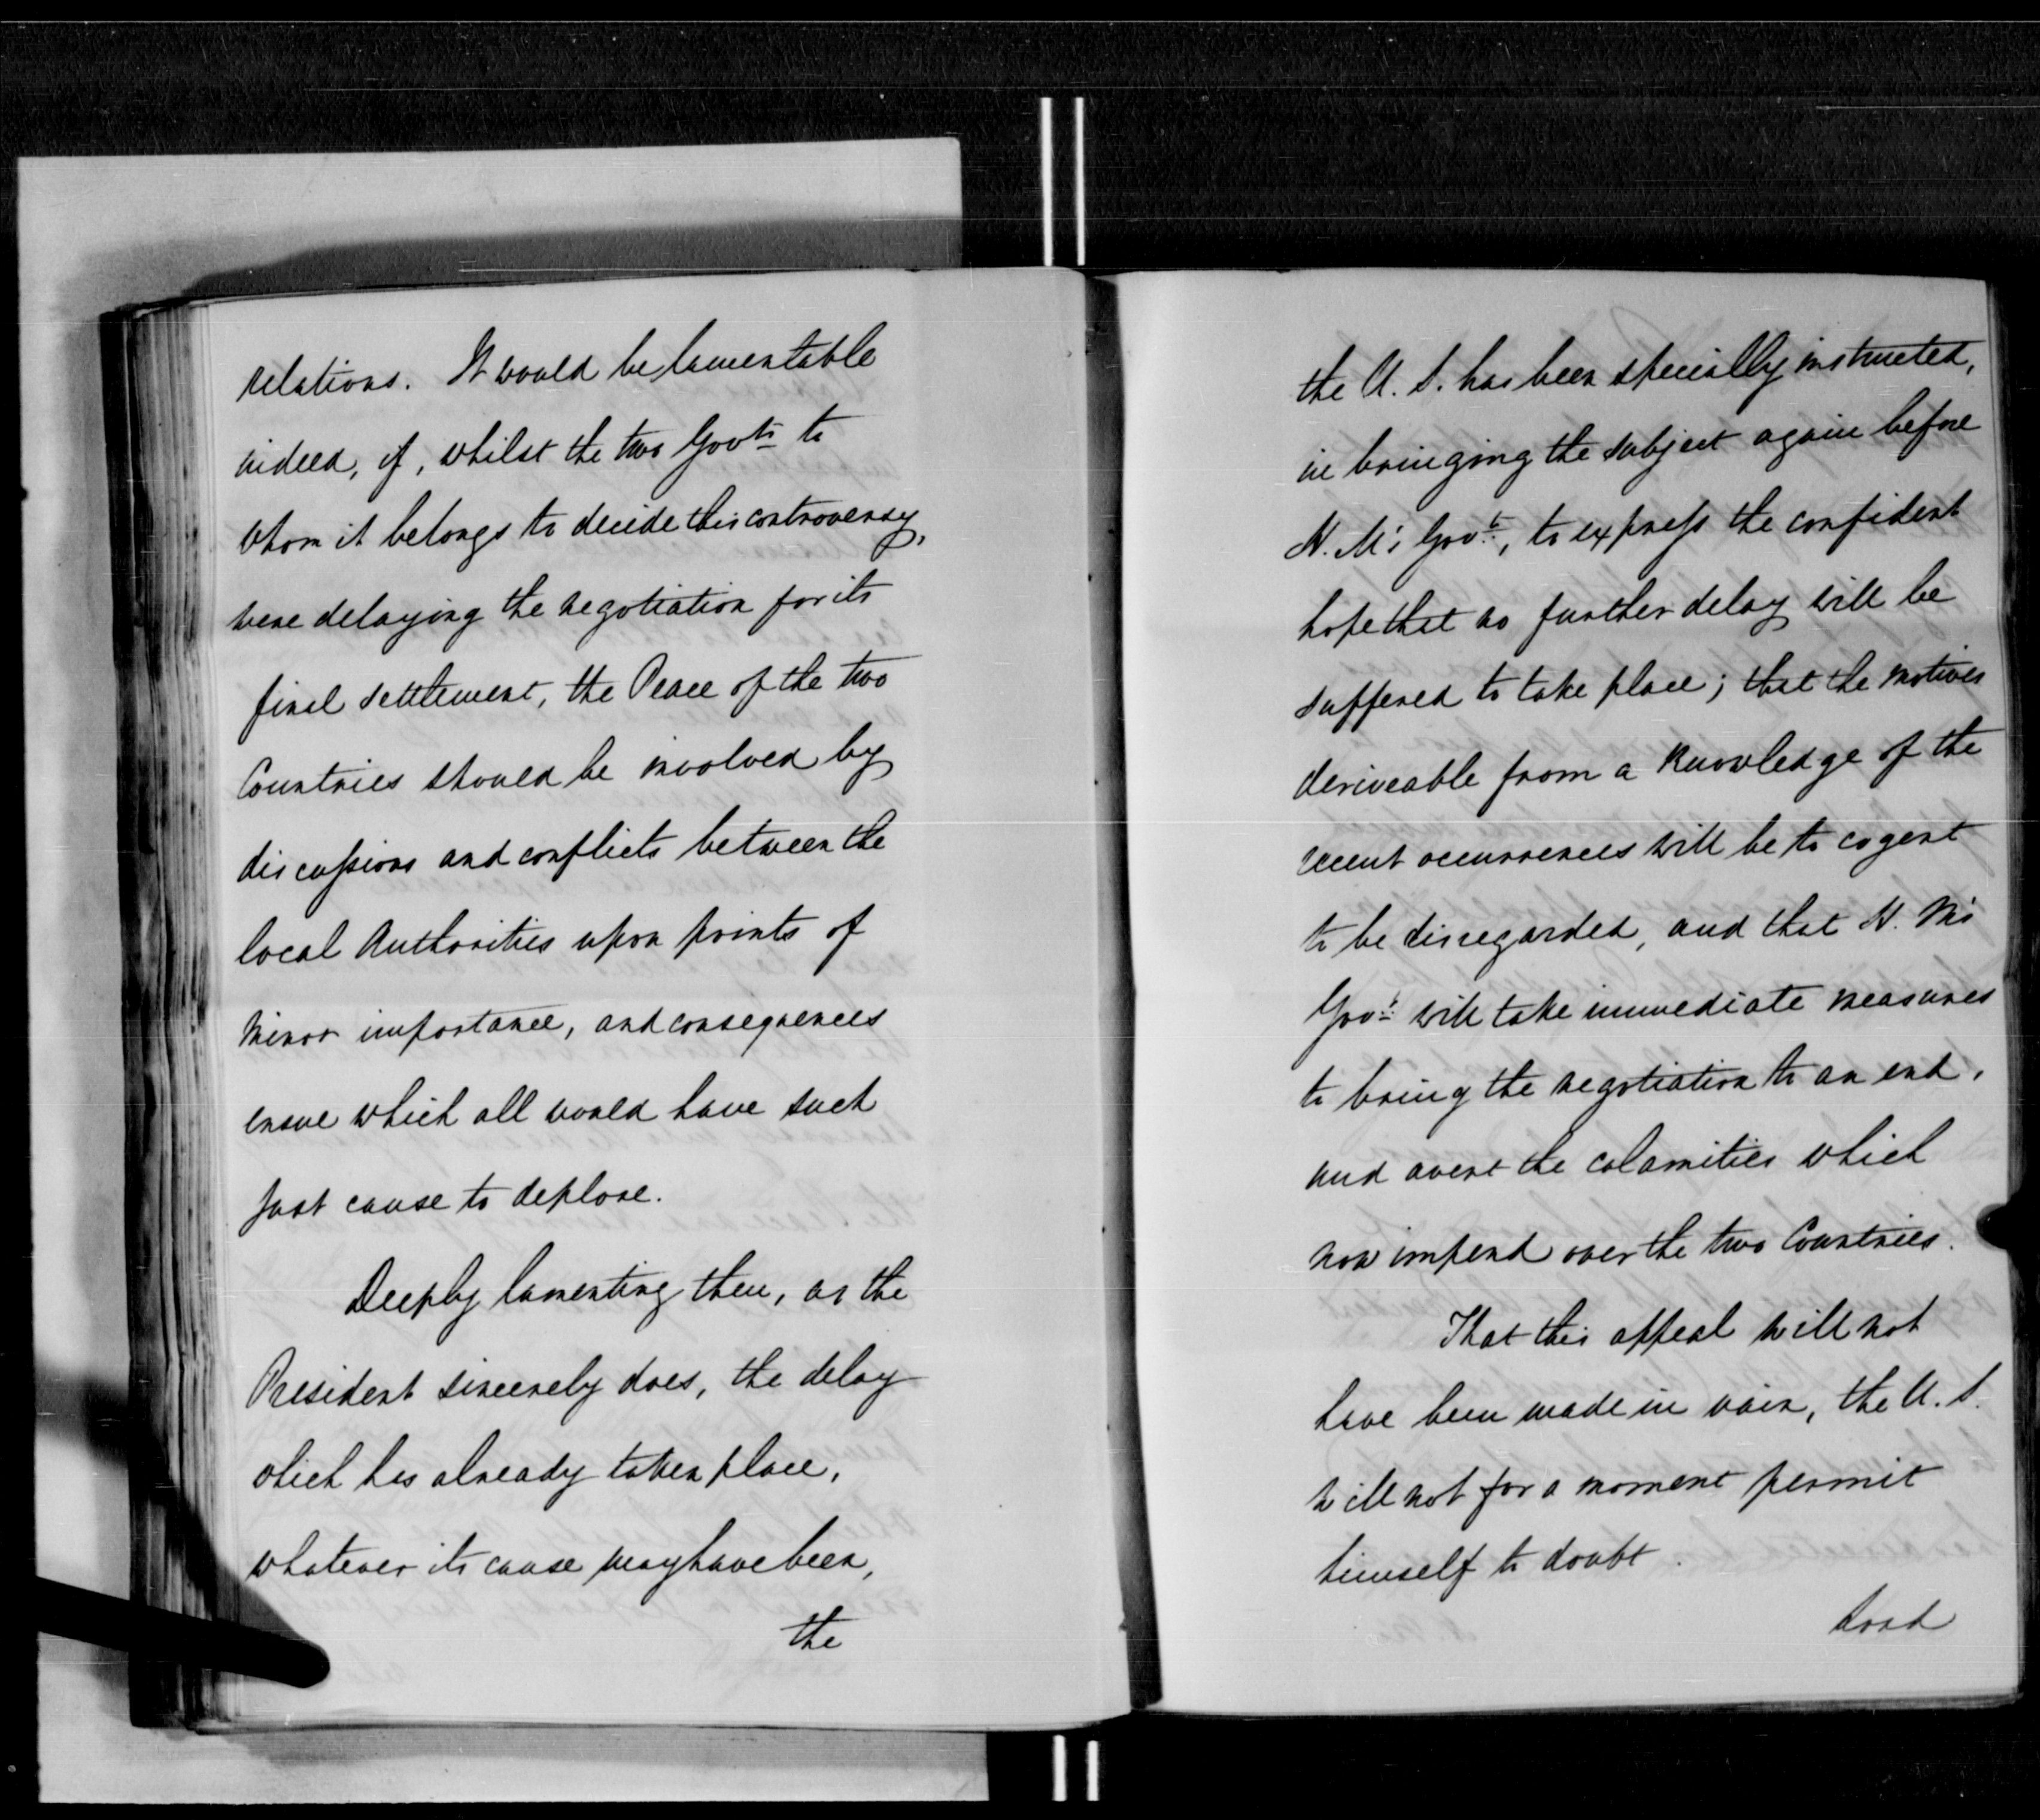 relations. It would be lamentable
indeed, if, whilst the two Govts to
whom it belongs to decide this controversy,
were delaying the negotiation for its
final settlement, the Peace of the two
Countries should be involved by
discussions and conflicts between the
local Authorities upon points of
minor importance, and consequences
ensue which all would have such
just cause to deplore.
Deeply lamenting then, as the
President sincerely does, the delay
which has already taken place,
whatever its cause may have been,
the
the U. S. has been specially instructed,
in bringing the subject again before
H. M's Govt, to express the confident
hope that no further delay will be
suffered to take place; that the motives
deriveable from a knowledge of the
recent occurrences will be to cogent
to be disregarded, and that H. M's
Govt will take immediate measures
to bring the negotiation to an end,
and avert the calamities which
now impend over the two Countries.
That this appeal will not
have been made in vain, the U. S.
will not for a moment permit
himself to doubt.
Lord